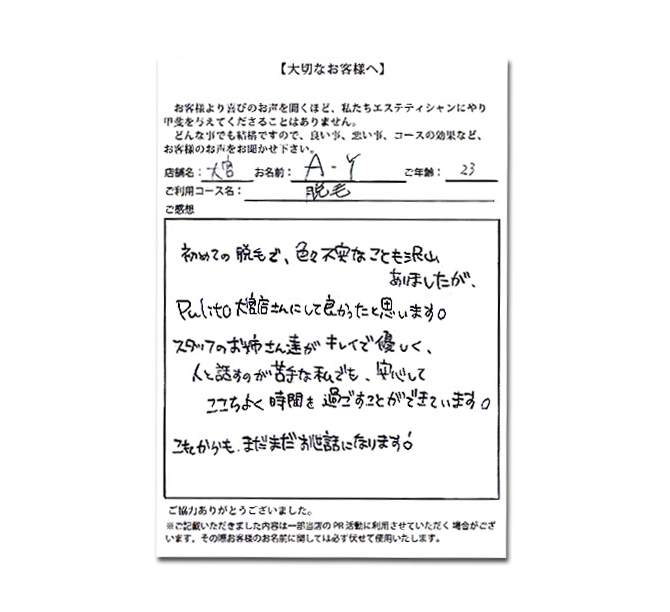 【大切なお客様へ】
お客様より喜びのお声を聞くほど、私たちエステティシャンにやり
甲斐を与えてくださることはありません。
どんな事でも結構ですので、良い事、悪い事、コースの効果など、
お客様のお声をお聞かせ下さい。
店舗名： 大宮 お名前： A-Y ご年齢： 23
ご利用コース名： 脱毛
ご感想
初めての脱毛で、色々不安なことも沢山
ありましたが、
Pulito大宮店さんにして良かったと思います。
スタッフのお姉さん達がキレイで優しく、
人と話すのが苦手な私でも、安心して
ここちよく時間を過ごすことができています。
これからも、まだまだお世話になります!
ご協力ありがとうございました。
※ご記載いただきました内容は一部当店のPR活動に利用させていただく場合がござ
います。その際お客様のお名前に関しては必ず伏せて使用いたします。